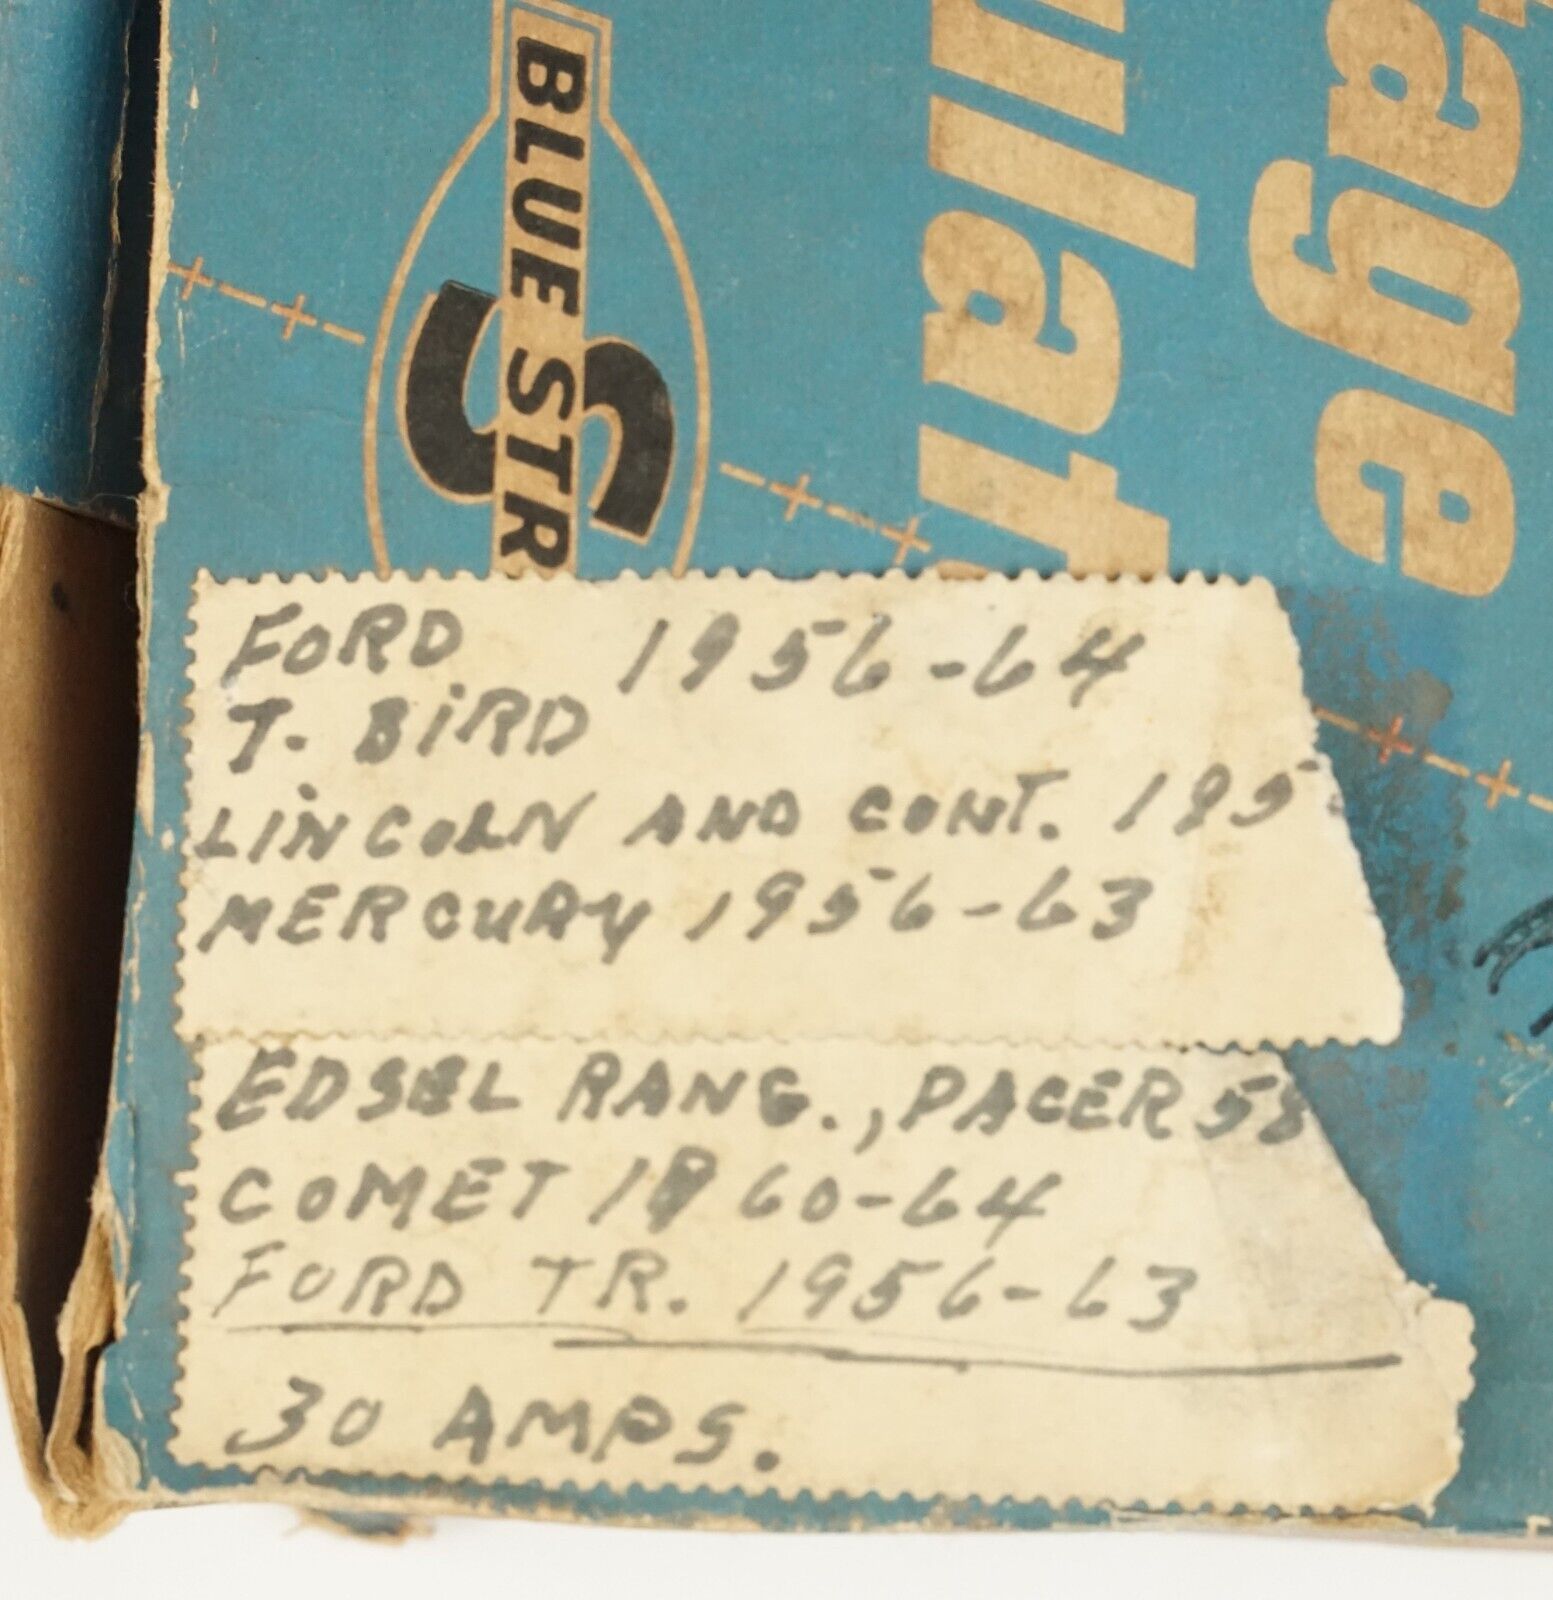 BLUE STR
S
ulat
tage
FORD 1956-64
T. BIRD
LINCOLN AND CONT. 195
MERCURY 1956-63
EDSEL RANG., PACER 58
COMET 1960-64
FORD TR. 1956-63
30 AMPS.